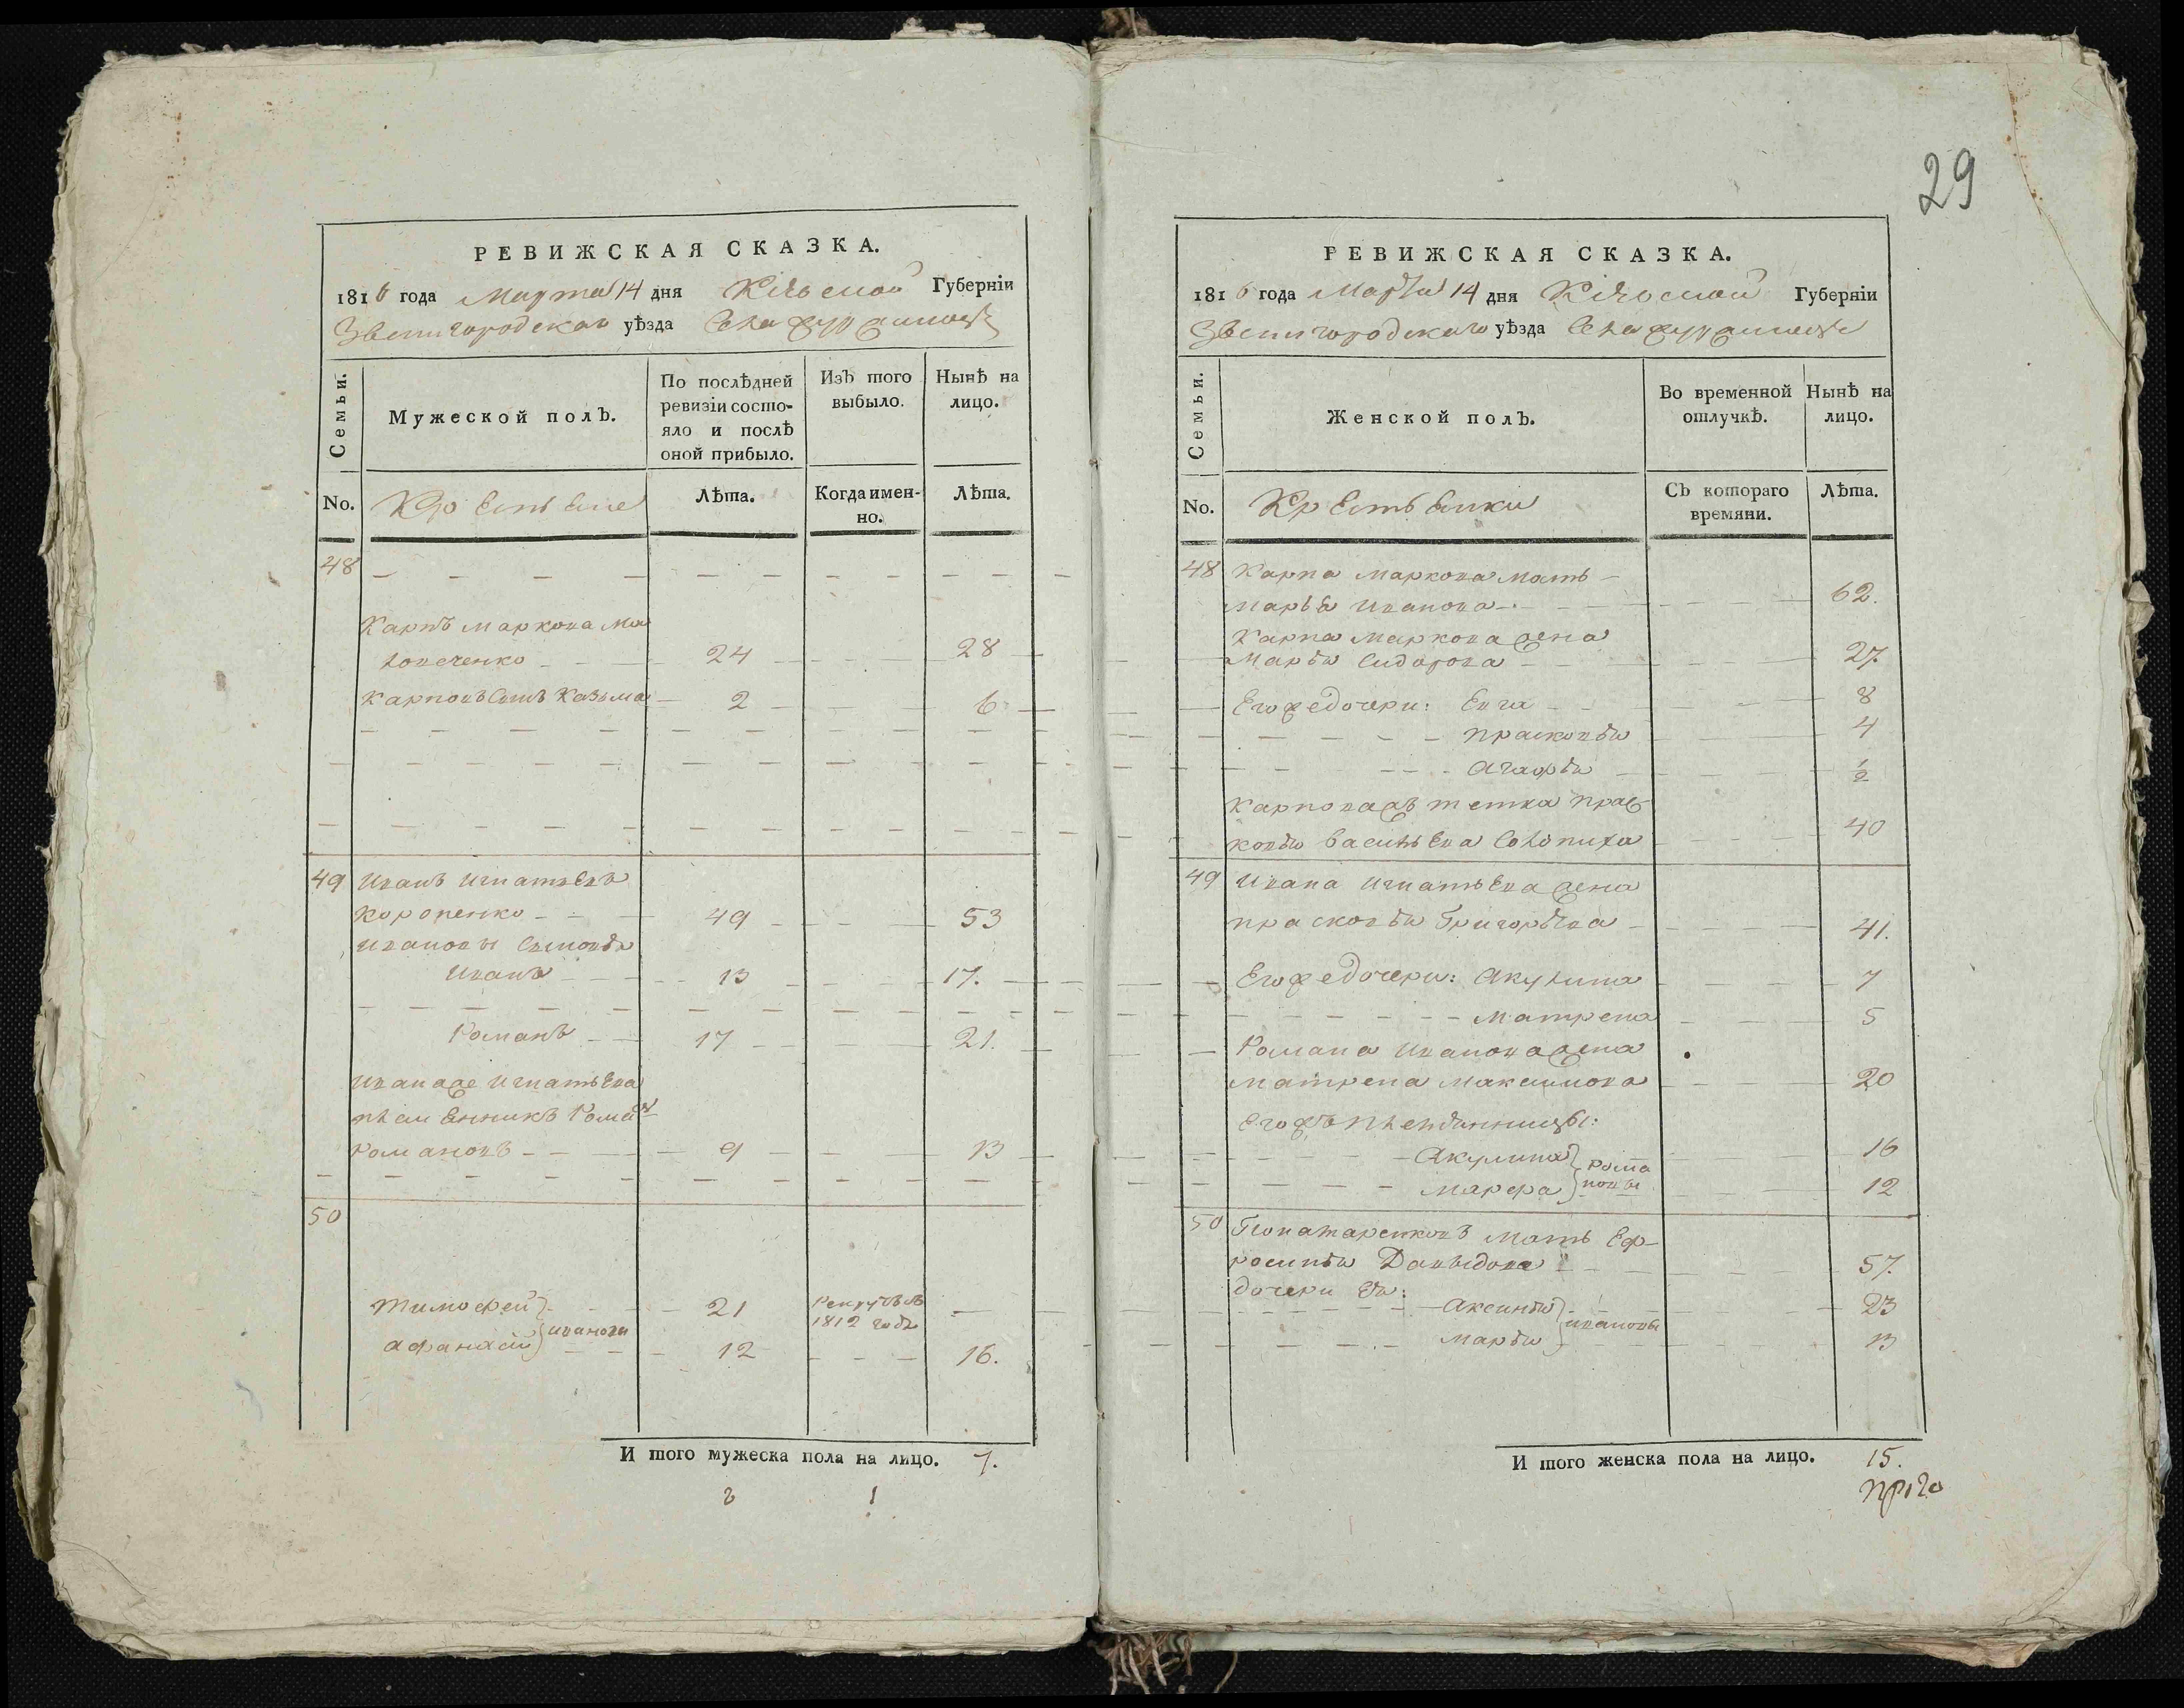 РЕВИЖСКАЯ СКАЗКА.
1816 года Марта 14 дня Кіевской Губерніи
Звенигородскаго уѣзда Села
Семьи.
Мужеской полЪ.
По послѣдней ревизіи состояло и послѣ оной прибыло.
ИзЪ того выбыло.
Нынѣ на лицо.
No.
Крестьяне
Лѣта.
Когда именно.
Лѣта.
48
Карпъ Маркова
24 28
Карповъ Сынъ Казьма 2 6
49 Иванъ Игнатьевъ
Коропенко 49 53
Ивановы Сыновья
Иванъ 13 17.
Романъ 17 21.
Игнатьева
племенникъ Роман
Романовъ 9 13
50
Тимофей 21 Рекрутъ въ
1812 годе
Ивановы
Афанасій 12 16.
И того мужеска пола на лицо. 7.
1
29
РЕВИЖСКАЯ СКАЗКА.
1816 года Марта 14 дня Кіевской Губерніи
Звенигородскаго уѣзда Села
Семьи.
Женской полЪ.
Во временной отлучкѣ.
Нынѣ на лицо.
No.
Крестьянки
СЪ котораго времяни.
Лѣта.
48 Карпа Маркова мать
Марья Иванова 62.
Карпа Маркова жена
Марья Сидорова 27.
Егожедочери: Евга 8
Прасковья 4
Агафья 1/2
тетка Прас
ковья Васильева 40
49 Ивана Игнатьева жена
Прасковья Григорьева 41.
Егожедочери: Акулина 7
Матрена 5
Романа Иванова жена
Матрена Максимова 20
Егожъ племянницы:
Акулина 16
Рома
новы
Марфа 12
50 мать Еф
росинья Давыдова 57.
дочери Ея:
Аксинья 23
Ивановы
Марья 13
И того женска пола на лицо. 15.